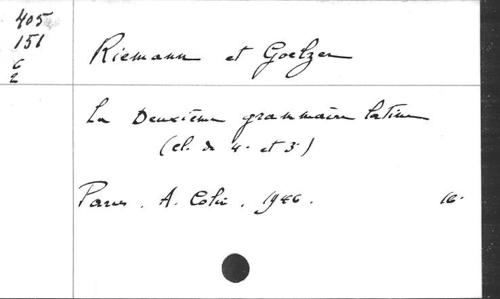 405
151
6
2
Riemann et Goelzer
La Deuxième grammaire latine
(cl. de 4e et 3e)
Paris. A. Colin. 1926. 16.